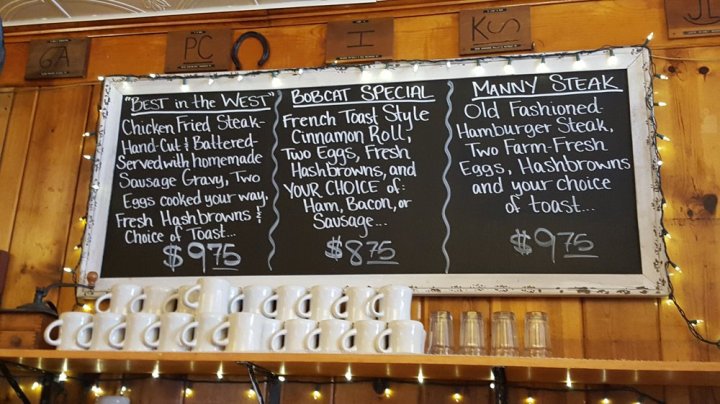 GA
PC
I
KS
"BEST in the WEST"
Chicken Fried Steak-
Hand-Cut & Battered-
Served with homemade
Sausage Gravy, Two
Eggs cooked your way,
Fresh Hashbrowns &
Choice of Toast...
$9.75
BOBCAT SPECIAL
French Toast Style
Cinnamon Roll,
Two Eggs, Fresh
Hashbrowns, and
YOUR CHOICE of:
Ham, Bacon, or
Sausage...
$8.75
MANNY STEAK
Old Fashioned-
Hamburger Steak,
Two Farm-Fresh
Eggs, Hashbrowns
and your choice
of toast...
$9.75